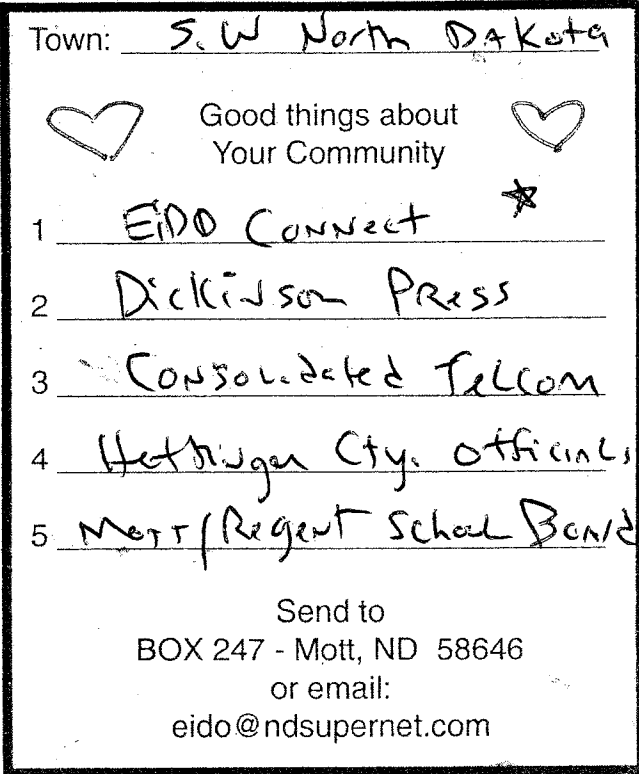 Town: S.W North Dakota
Good things about
Your Community
1 EiDO Connect
2 Dickinson Press
3 Consolidated Telcom
4 Hettinger Cty. Officials
5 Mott/Regent School Board
Send to
BOX 247 - Mott, ND 58646
or email:
eido@ndsupernet.com